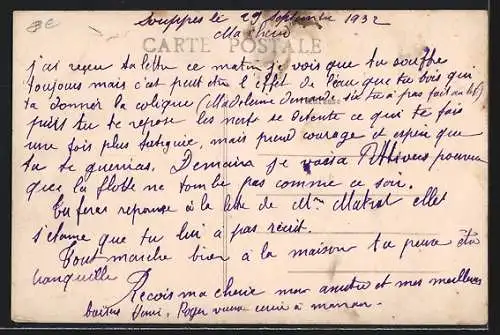 3€
Souppes le 29 Septembre 1932
CARTE POSTALE
Ma cherie
j'ai reçu ta lettre ce matin je vois que tu souffre
toujours mais c'est peut être l'effet de l'eau que tu bois qui
ta donner la colique (Madeleine demande si tu a pas fait au lit)
puis tu te repose les nerfs se detente ce qui te fais
une fois plus fatiguée, mais prend courage et espère que
tu te guerriras. Demain je vais a pourvu
que la flotte ne tombe pas comme ce soir.
Tu feras reponse à la lettre de Mme elle
s'etonne que tu lui a pas récrit.
Tout marche bien à la maison tu peux être
tranquille
Recois ma cherie mon amitié et mes meilleurs
Roger veux ecrir à maman.